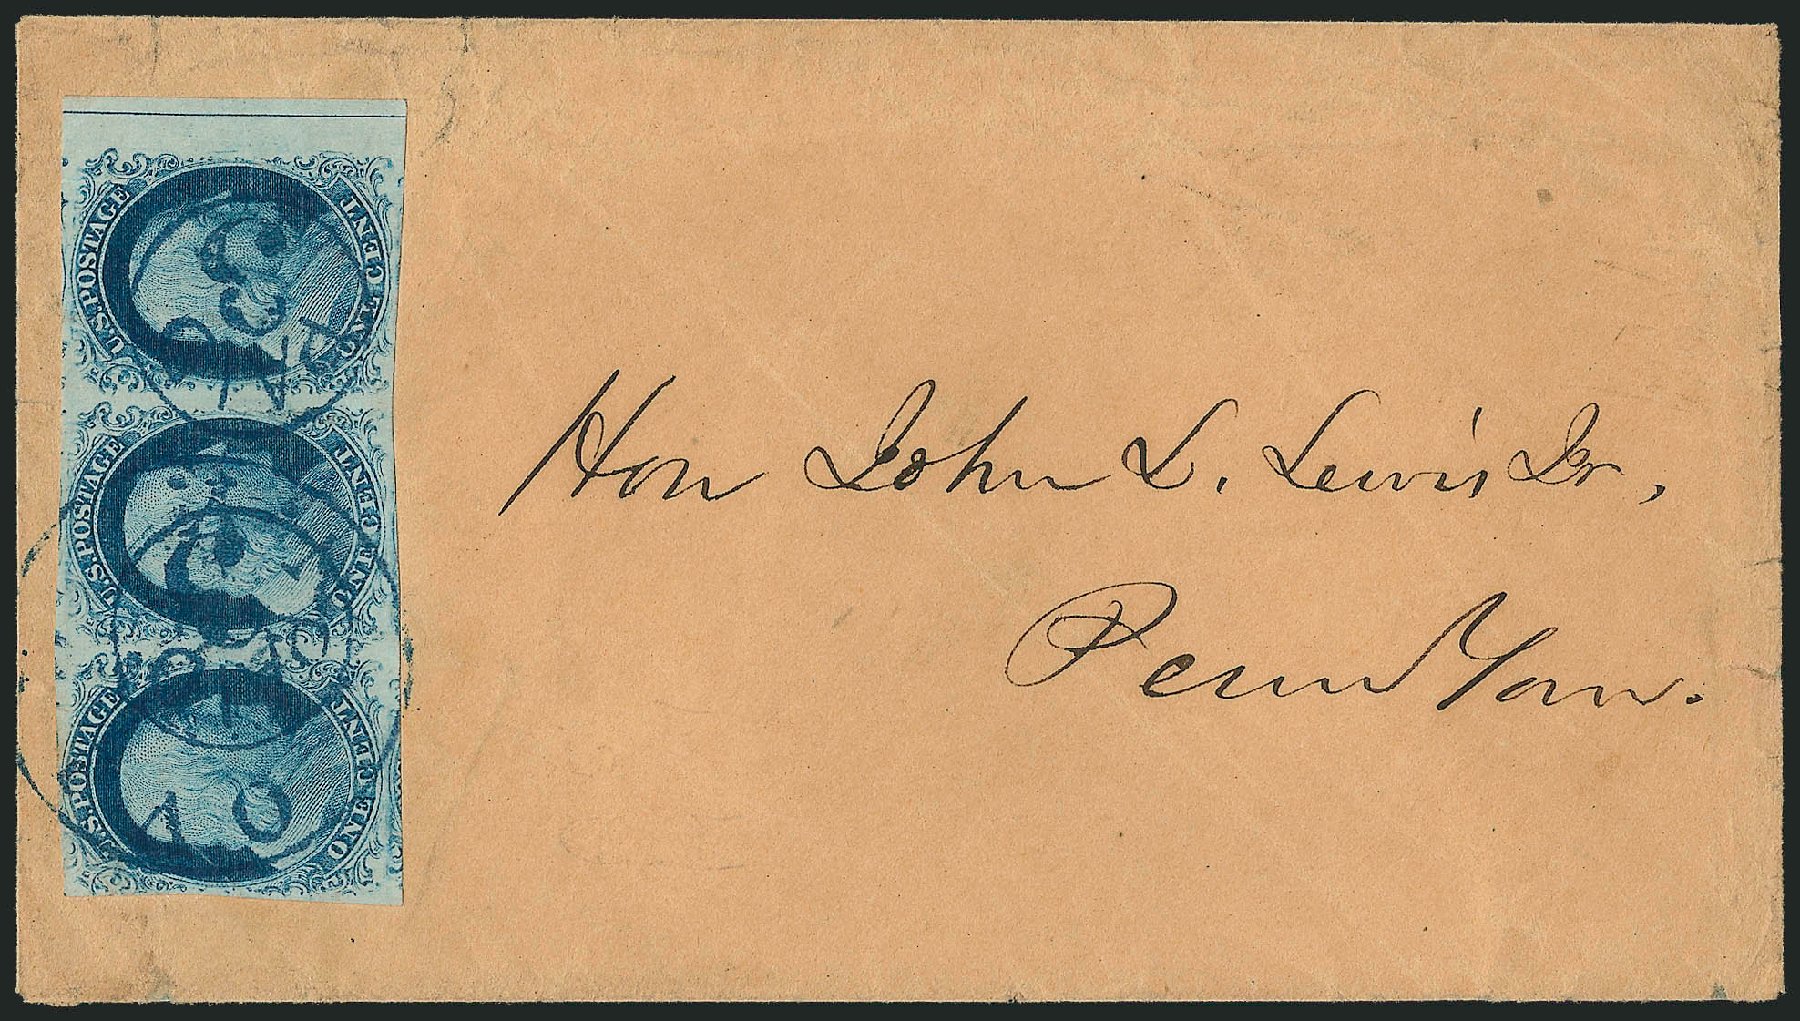 U.S. POSTAGE
ONE CENT
U.S. POSTAGE
ONE CENT
U.S. POSTAGE
ONE CENT
Hon John L. Lewis Jr,
Penn Yan.